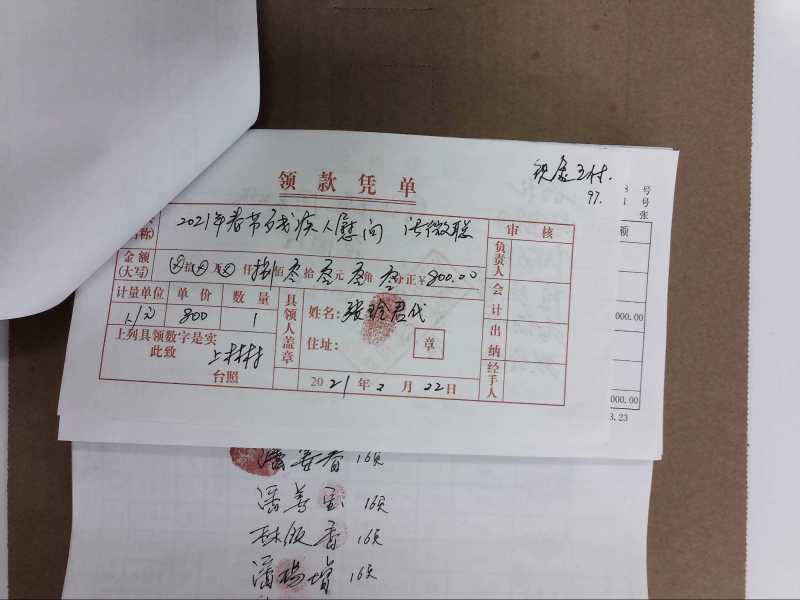 现金支付.
97.
号
号
张
领款凭单
名称)
2021年春节残疾人慰问
审核
额
金额
(大写)
拾 万 仟捌佰零拾零元零角零分正¥800.00
计量单位 单价 数量
人/元 800 1
具领人盖章
姓名:
住址:
章
上列具领数字是实
此致
台照
2021年2月22日
负责人
会计
出纳
经手人
000.00
000.00
3.23
潘善香 16天
潘善宝 16天
16天
潘杨增 16天